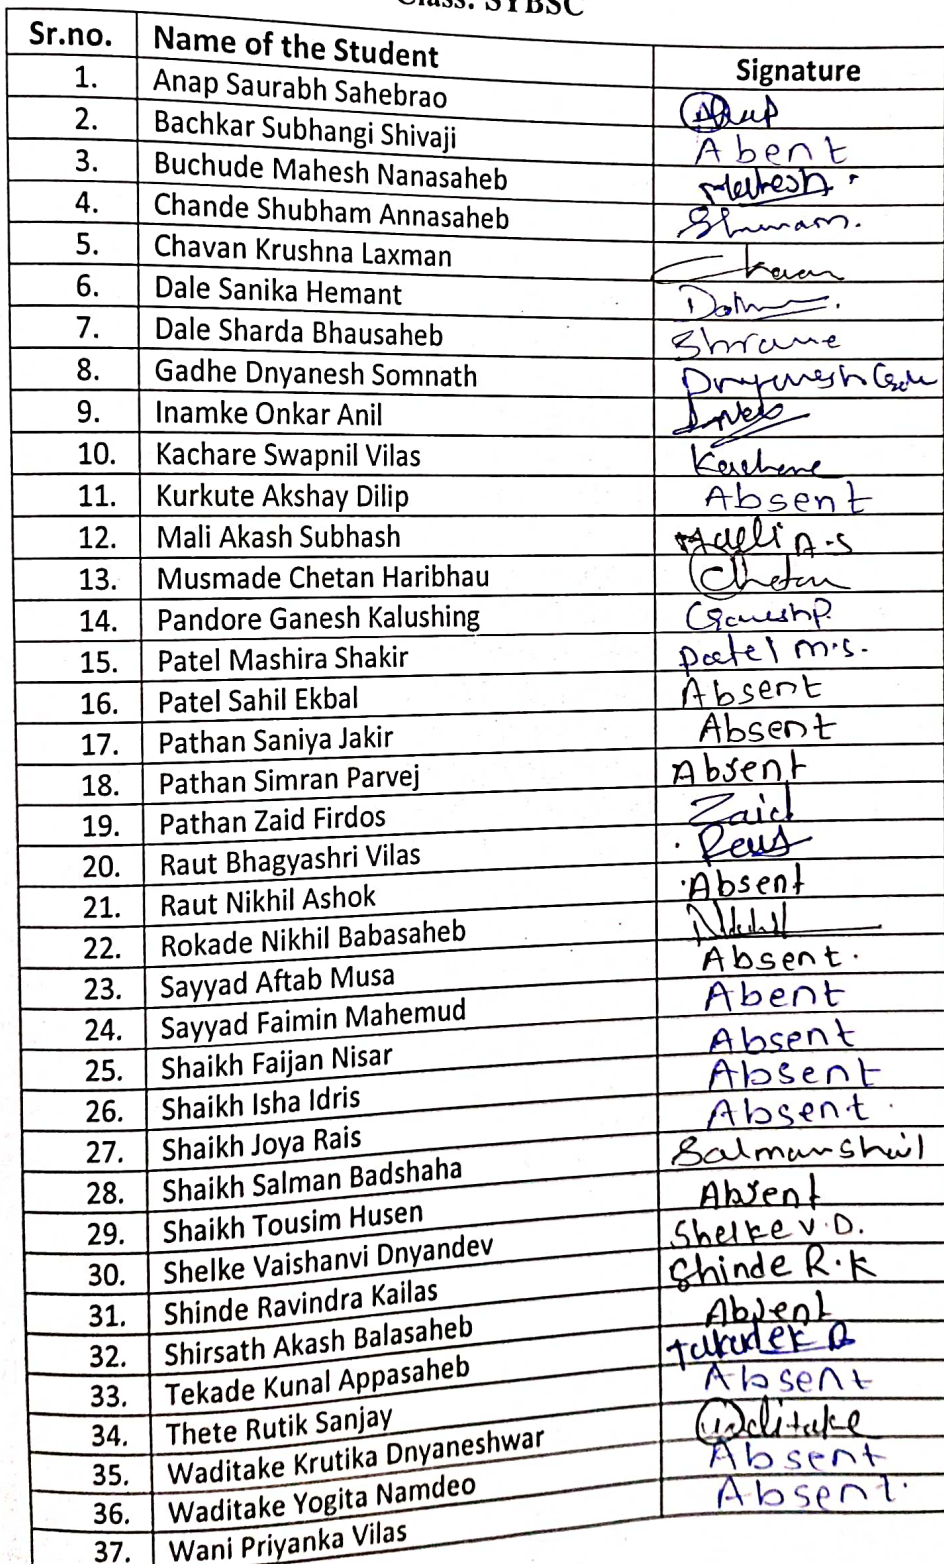 Class: SYBSC
Sr.no. Name of the Student Signature
1. Anap Saurabh Sahebrao Anap
2. Bachkar Subhangi Shivaji Abent
3. Buchude Mahesh Nanasaheb Mahesh.
4. Chande Shubham Annasaheb
5. Chavan Krushna Laxman
6. Dale Sanika Hemant
7. Dale Sharda Bhausaheb
8. Gadhe Dnyanesh Somnath Dnyanesh
9. Inamke Onkar Anil
10. Kachare Swapnil Vilas Kachare
11. Kurkute Akshay Dilip Absent
12. Mali Akash Subhash Mali A.S
13. Musmade Chetan Haribhau Chetan
14. Pandore Ganesh Kalushing Ganesh P.
15. Patel Mashira Shakir Patel M.S.
16. Patel Sahil Ekbal Absent
17. Pathan Saniya Jakir Absent
18. Pathan Simran Parvej Absent
19. Pathan Zaid Firdos Zaid
20. Raut Bhagyashri Vilas
21. Raut Nikhil Ashok Absent
22. Rokade Nikhil Babasaheb
23. Sayyad Aftab Musa Absent.
24. Sayyad Faimin Mahemud Abent
25. Shaikh Faijan Nisar Absent
26. Shaikh Isha Idris Absent
27. Shaikh Joya Rais Absent.
28. Shaikh Salman Badshaha Salman
29. Shaikh Tousim Husen Absent
30. Shelke Vaishanvi Dnyandev Shelke V.D.
31. Shinde Ravindra Kailas Shinde R.K
32. Shirsath Akash Balasaheb Absent
33. Tekade Kunal Appasaheb
34. Thete Rutik Sanjay Absent
35. Waditake Krutika Dnyaneshwar Waditake
36. Waditake Yogita Namdeo Absent
37. Wani Priyanka Vilas Absent.